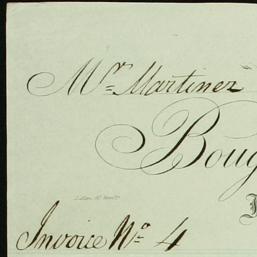 Mr Martiner
Boug
Invoice No 4